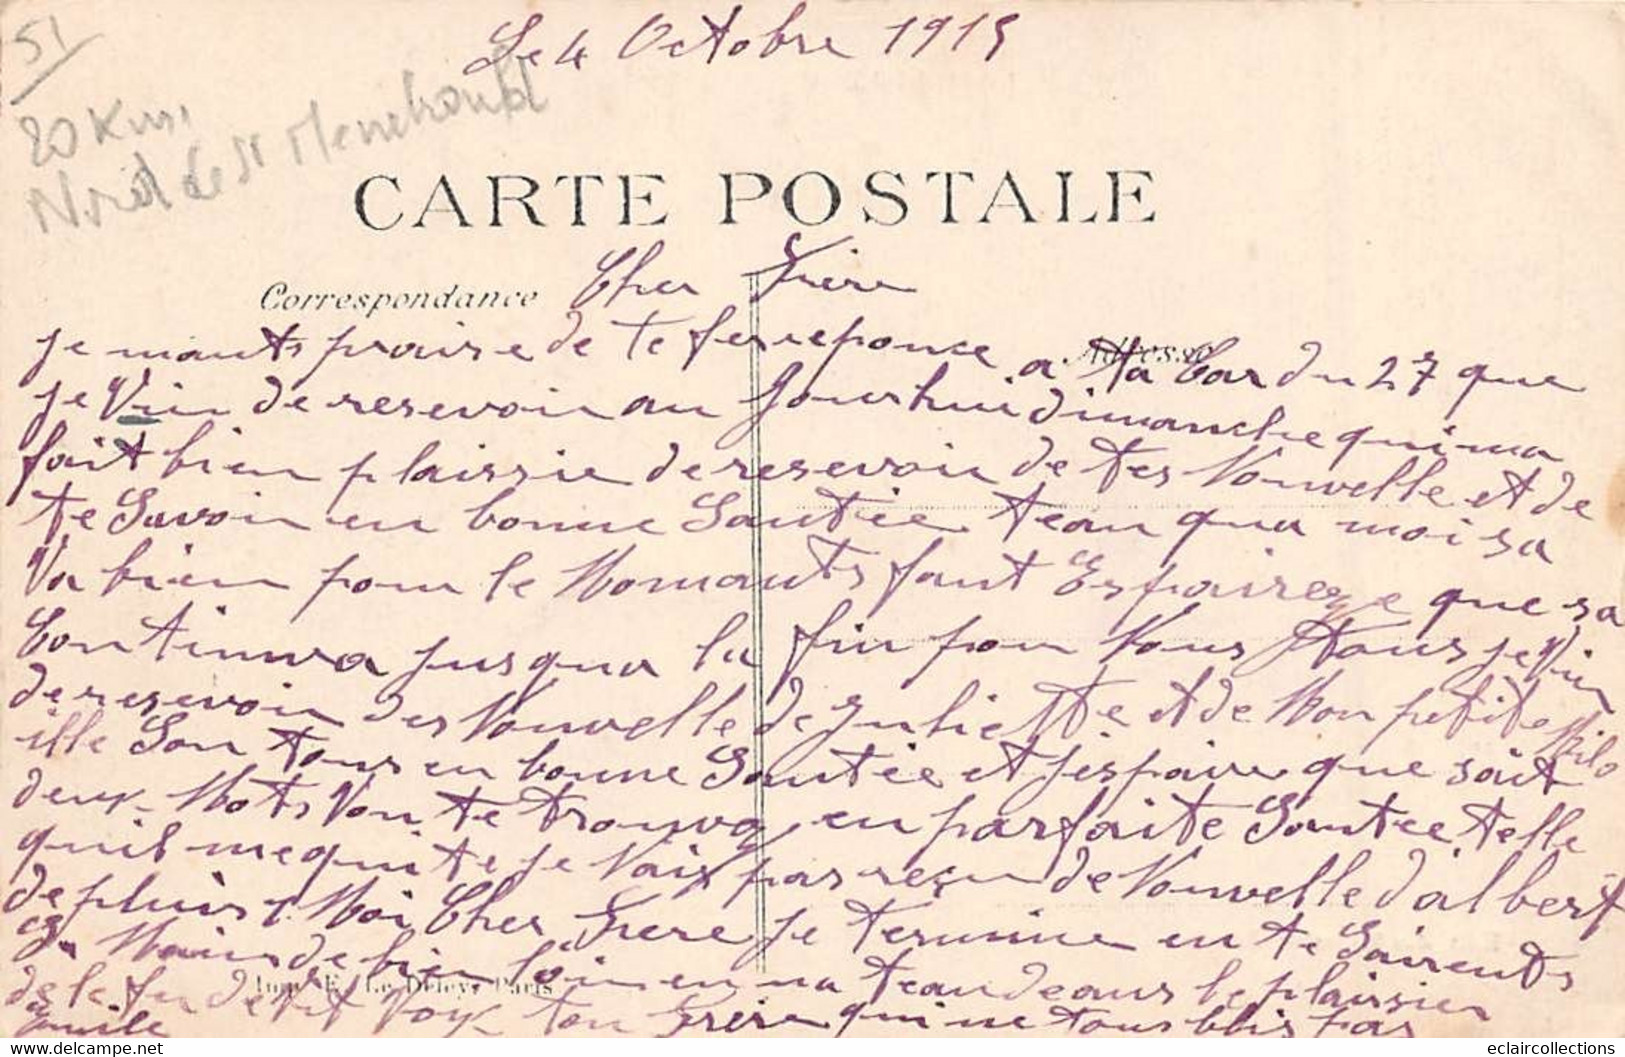 51
Le 4 Octobre 1915
20 Kms
Nord de St Menehould
CARTE POSTALE
Correspondance
Cher Frère
Adresse
je mants praise de te fer reponce a ta Car du 27 que
je Vien de resevoir au Jourhui dimanche qui ma
fait bien plaissie de resevoir de tes Nouvelle et de
te Savoir en bonne Santiée tean qua moi sa
Va bien pour le Momants faut Espaireze que sa
Continura jusqua la fin pour Vous Tous je Vien
de resevoir des Nouvelle de Juliette et de Mon petite Milo
ille Son tous en bonne Santiée et j'espaire que sait
deux Mots Von te trouvez en parfaite Santiee telle
quil me quite je Naix pas reçu de Nouvelle d'albert
depluis 1 Moi Cher Frere je termine en te Sairents
la Main de bien loin en na teandeans le plaissier
de le fer de Vive Voix ton Frère qui ne tous blis pas
Emile
Imp. E. Le Deley, Paris
eclaircollections